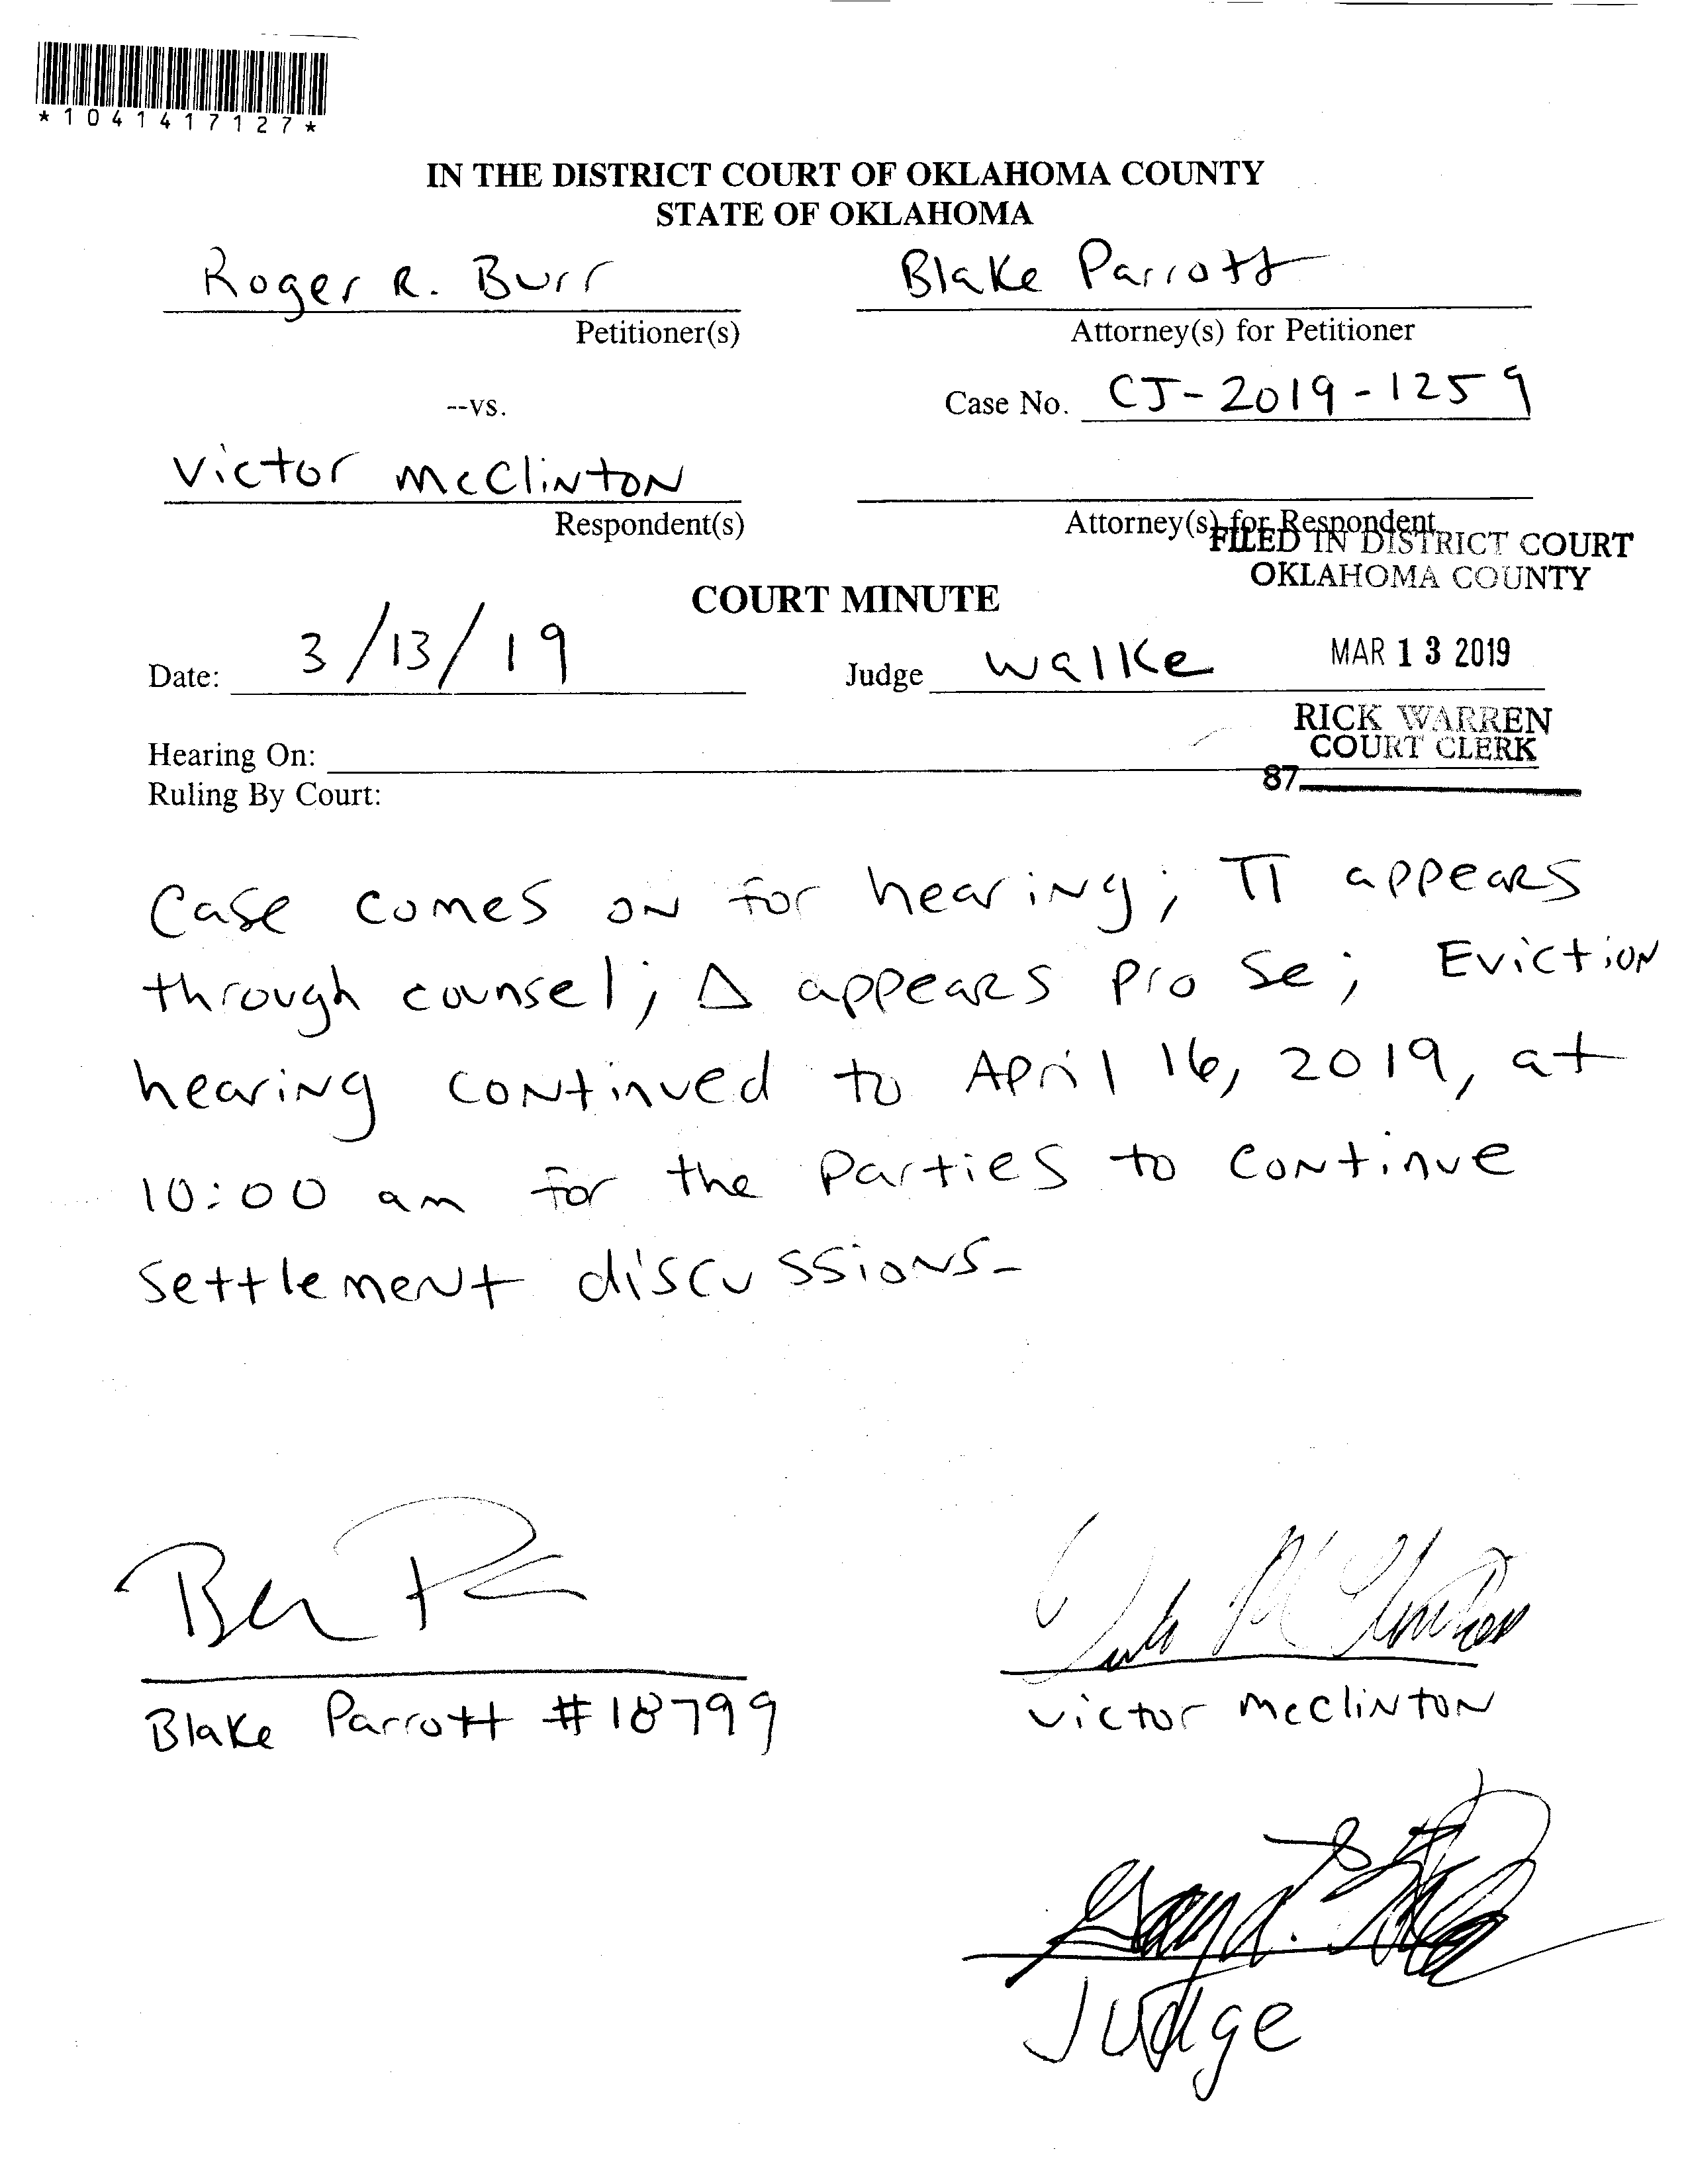 *1041417127*
IN THE DISTRICT COURT OF OKLAHOMA COUNTY
STATE OF OKLAHOMA
Roger R. Burr
Blake Parrott
Petitioner(s)
Attorney(s) for Petitioner
--vs.
Case No. CJ-2019-1259
Victor McClinton
Respondent(s)
Attorney(s) for Respondent
FILED IN DISTRICT COURT
OKLAHOMA COUNTY
COURT MINUTE
Date: 3/13/19
Judge Walke
MAR 13 2019
RICK WARREN
COURT CLERK
Hearing On:
87
Ruling By Court:
Case comes on for hearing; π appears
through counsel; Δ appears pro se; Eviction
hearing continued to April 16, 2019, at
10:00 am for the parties to continue
settlement discussions.
Victor McClinton
Blake Parrott #18799
Victor McClinton
Judge